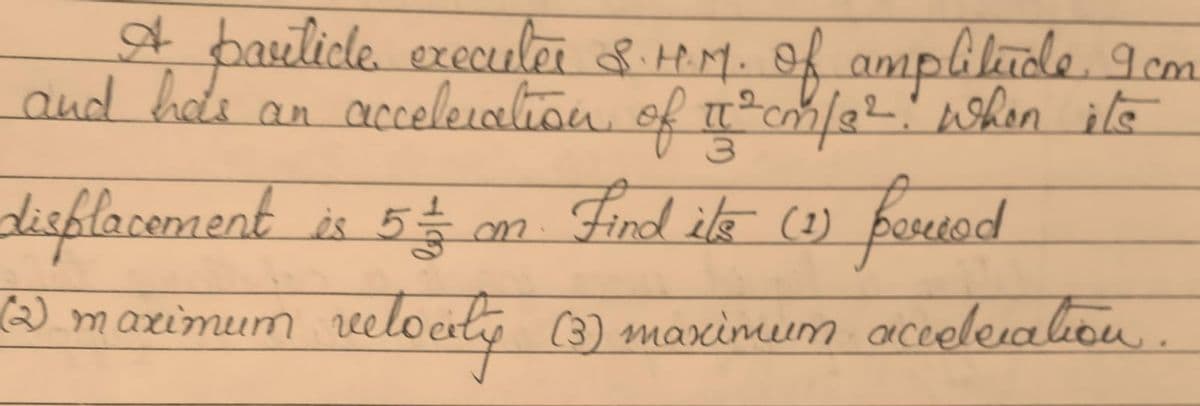 A particle executes S.H.M. of amplitude 9cm
and has an acceleration of π²/3 cm/s². when its
displacement is 5 1/3 cm. Find its (1) period
(2) maximum velocity (3) maximum acceleration.